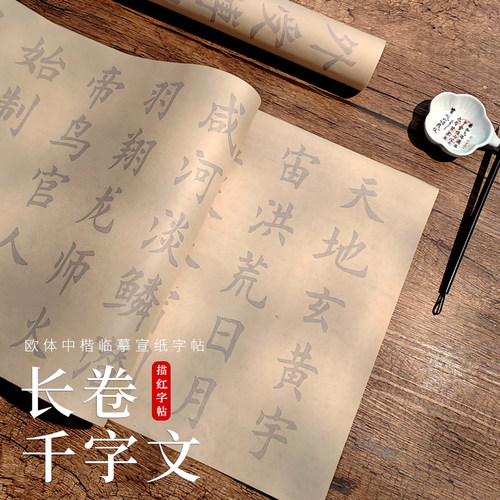 外受傅
天地玄黄宇
宙洪荒日月
咸河淡鳞
羽翔龙师火
帝鸟官人
始制
欧体中楷临摹宣纸字帖
长卷
千字文
描红字帖